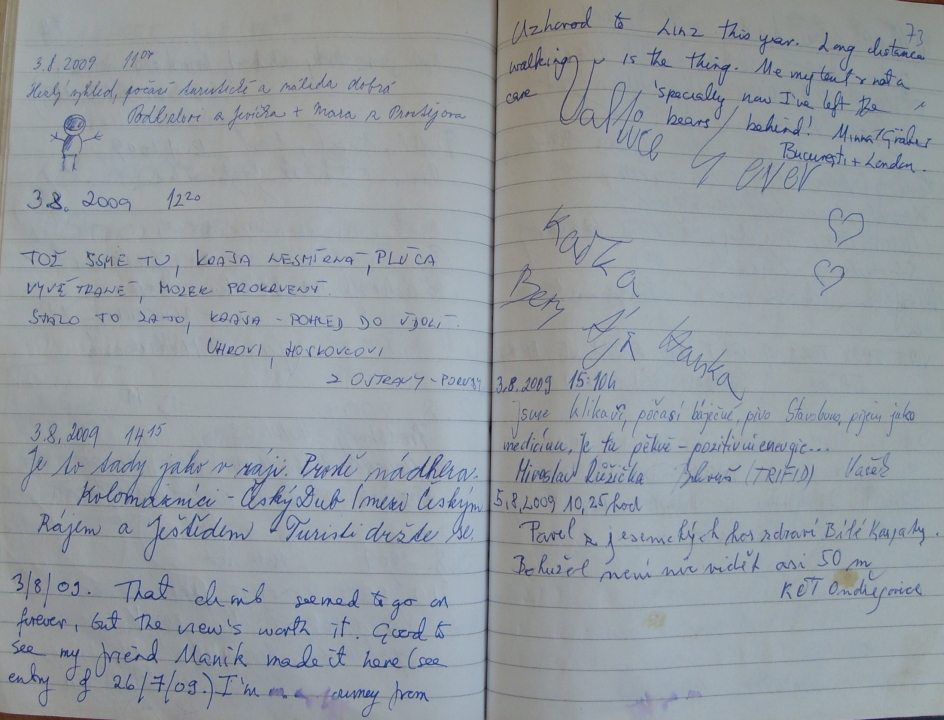 3.8.2009 11⁰⁷
Hezký výhled, počasí turistické a nálada dobrá
a Jevíčka + z Prostějova
3.8. 2009 12²⁰
TOŽ JSME TU, KRÁSA NESMÍRNÁ, PLÍCA
VYVĚTRANÉ, MOZEK PROKRVENÝ.
STÁLO TO ZA TO, KRÁSA - POHLED DO ÚDOLÍ.
UHROVI,
Z OSTRAVY - PORUBY
3.8.2009 14¹⁵
Je to tady jako v ráji. Prostě nádhera.
- Český Dub (mezi Českým
Rájem a Ještědem - Turisti držte se.
3/8/09. That climb seemed to go on
forever, but the view's worth it. Good to
see my friend Manik made it here (see
entry of 26/7/09.) I'm on a journey from
73
Uzhorod to Linz this year. Long distance
walking is the thing. Me my tent & not a
care 'specially now I've left the
bears behind!
București + London.
4 ever
Kačka
Ben
3.8.2009 15:10h
Jsme klikaři, počasí báječné, pivo pijem jako
medicínu. Je tu pěkně - pozitivní energie...
Miroslav Růžička (TRIFID) Vašek
5.8.2009 10,25 hod
Pavel z jesenických hor zdraví Bílé Karpaty.
Bohužel není nic vidět asi 50 m
KČT Ondřejovice